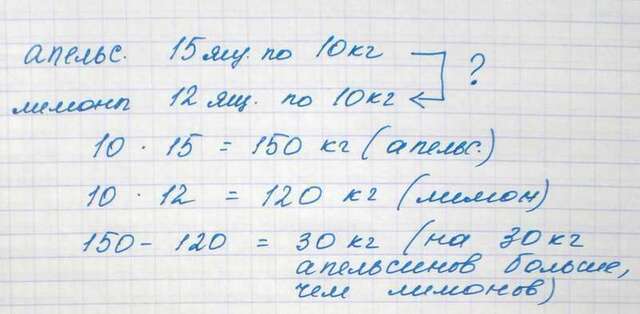 апельс. 15 ящ. по 10 кг ?
лимоны 12 ящ. по 10 кг
10 · 15 = 150 кг (апельс.)
10 · 12 = 120 кг (лимон)
150 - 120 = 30 кг (на 30 кг
апельсинов больше,
чем лимонов)